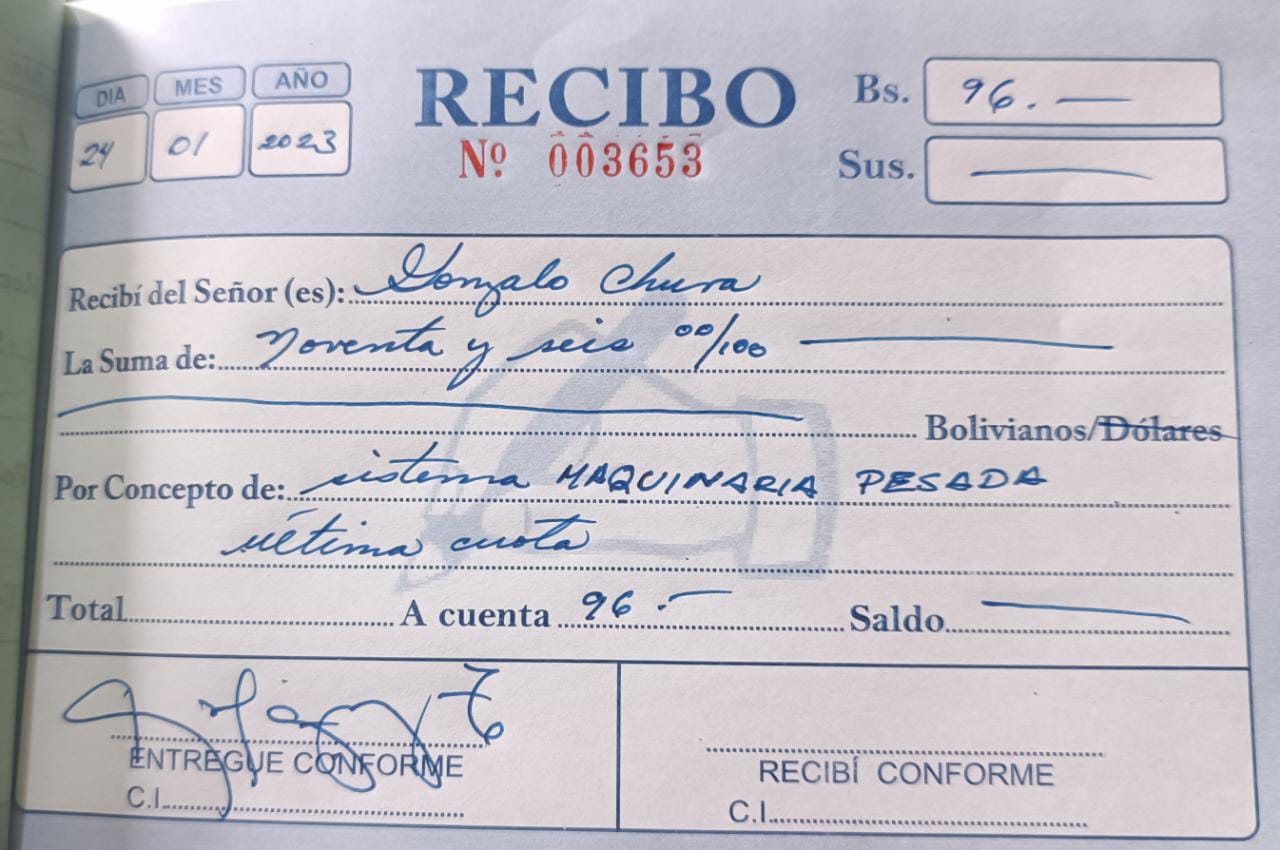 DIA MES AÑO
24 01 2023
RECIBO
Nº 003653
Bs. 96.—
Sus. —
Recibí del Señor (es): Gonzalo Chura
La Suma de: Noventa y seis 00/100 —
— Bolivianos/Dólares
Por Concepto de: sistema MAQUINARIA PESADA
última cuota
Total A cuenta 96.— Saldo —
ENTREGUE CONFORME
C.I.
RECIBÍ CONFORME
C.I.